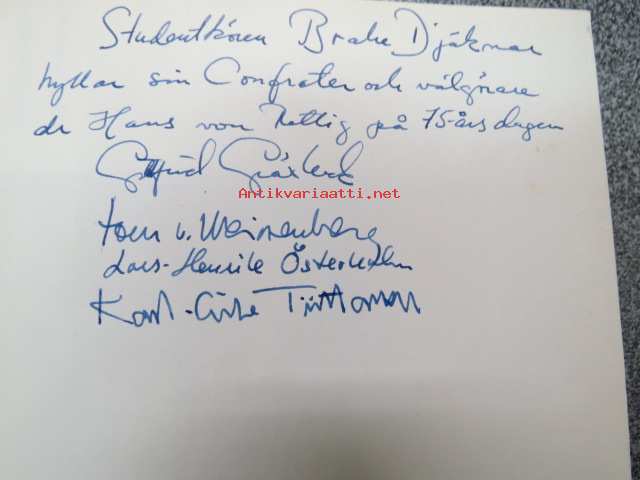 Studentkören Brahe Djäknar
hyllar sin Confrater och välgörare
dr Hans von Rettig på 75-års dagen
Gottfrid Gräsbeck
Antikvariaatti.net
Tom v. Weymarn
Lars-Henrik Österholm
Karl-